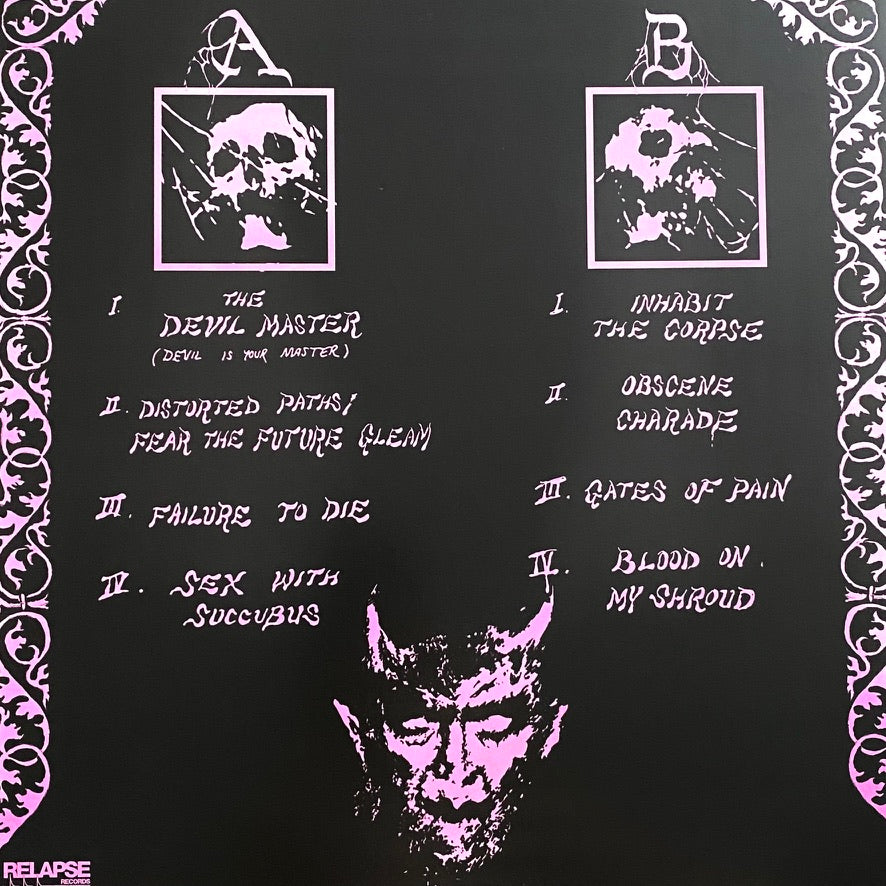 A
I. THE
DEVIL MASTER
(DEVIL IS YOUR MASTER)
II. DISTORTED PATHS/
FEAR THE FUTURE GLEAM
III. FAILURE TO DIE
IV. SEX WITH
SUCCUBUS
B
I. INHABIT
THE CORPSE
II. OBSCENE
CHARADE
III. GATES OF PAIN
IV. BLOOD ON
MY SHROUD
RELAPSE
RECORDS